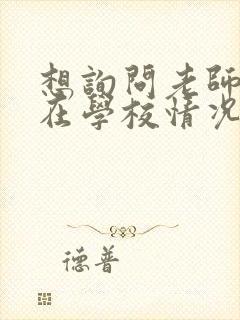 想詢問老師
在學校情況
德普